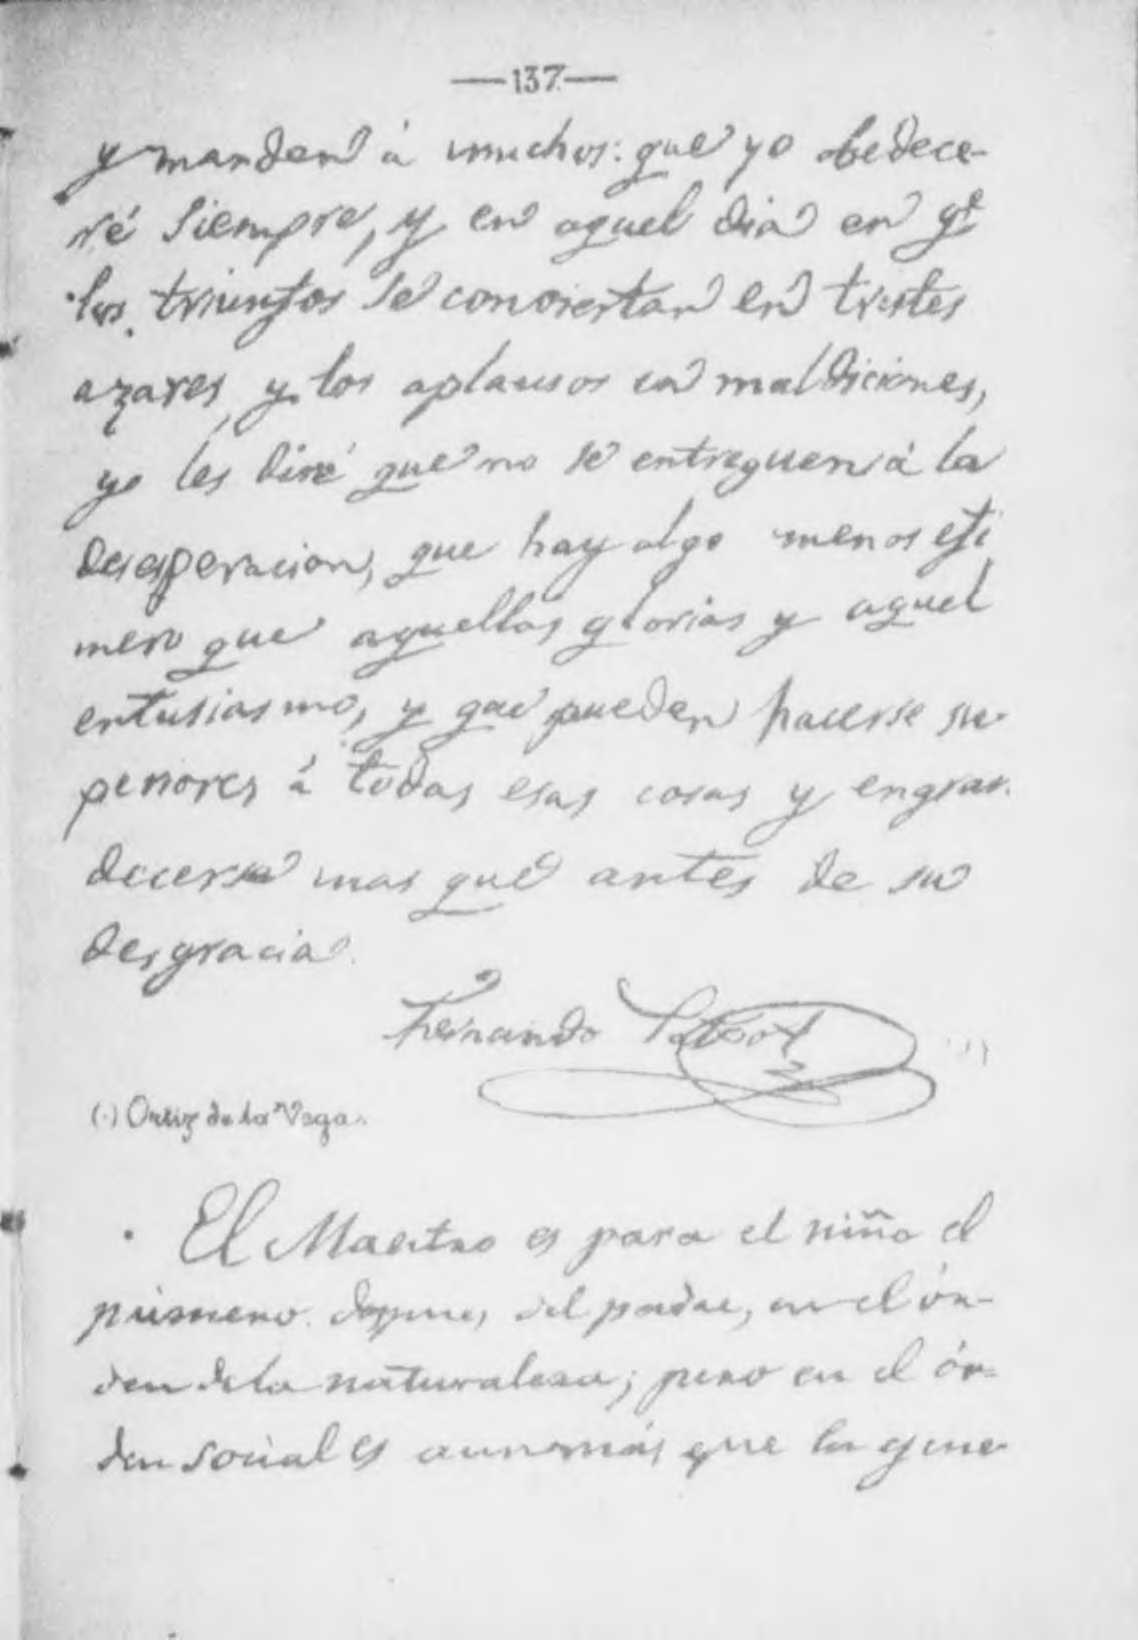 —137—
y manden á muchos: que yo obedece-
ré siempre, y en aquel dia en qe
los triunfos se conviertan en tristes
azares, y los aplausos en maldiciones,
yo les diré que no se entreguen á la
desesperacion, que hay algo menos efí
mero que aquellas glorias y aquel
entusiasmo, y que pueden hacerse su-
periores á todas esas cosas y engran-
decerse mas que antes de su
desgracia.
Fernando
(·) Ortiz de la Vega.
El Maestro es para el niño el
primero despues del padre, en el ór-
den de la naturaleza; pero en el ór-
den social es aun más, que la gene-